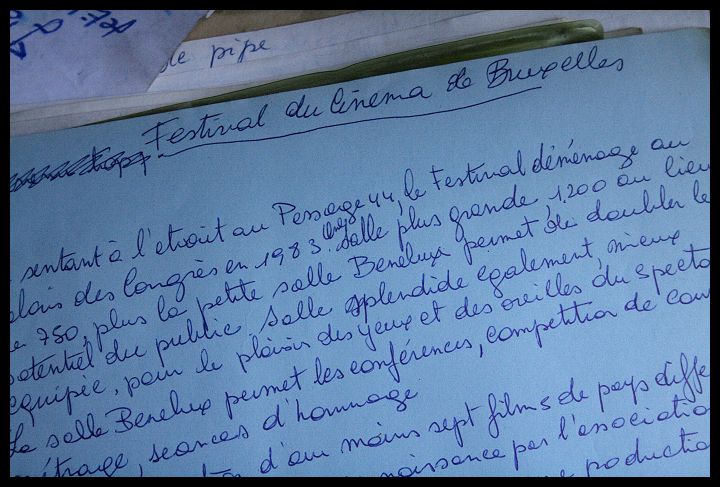 de pipe
Festival du Cinema de Bruxelles
sentant à l'etroit au Passage 44, le Festival déménage au
alais des Congrès en 1983. Une salle plus grande, 1.200 au lieu
750, plus la petite salle Benelux permet de doubler le
potentiel du public. Salle splendide egalement, mieux
equipée, pour le plaisir des yeux et des oreilles du specta
La salle Benelux permet les conférences, competition de cou
métrage, seances d'hommage
d'au moins sept films de pays diffe
naissance par l'associatio
productio